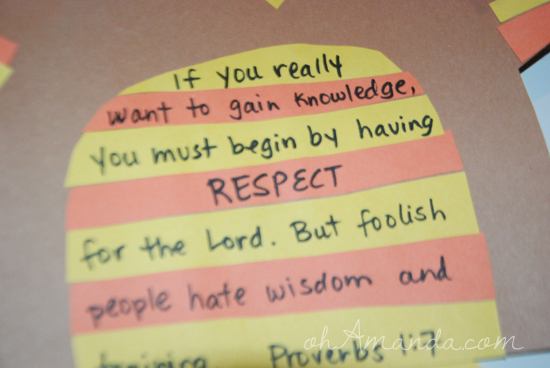 If you really
want to gain knowledge,
you must begin by having
RESPECT
for the Lord. But foolish
people hate wisdom and
training Proverbs 1:7
ohAmanda.com